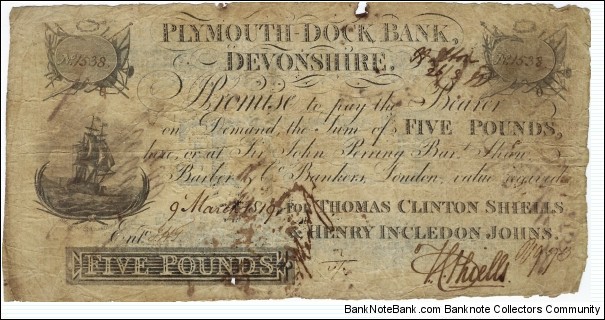 PLYMOUTH-DOCK BANK,
DEVONSHIRE.
No. 1538 No. 1538
I Promise to pay the Bearer
on Demand, the Sum of FIVE POUNDS,
here, or at Sir John Perring Bart. Shaw,
Barber & Co. Bankers, London, value received
9 March 181 FOR THOMAS CLINTON SHIELLS
& HENRY INCLEDON JOHNS.
Entd.
FIVE POUNDS
T C Shiells
www.BanknoteBank.com - Banknote Collectors Community